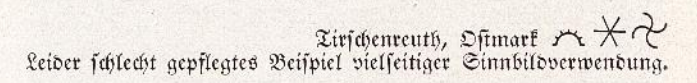 Tirschenreuth, Ostmark
Leider schlecht gepflegtes Beispiel vielseitiger Sinnbildverwendung.